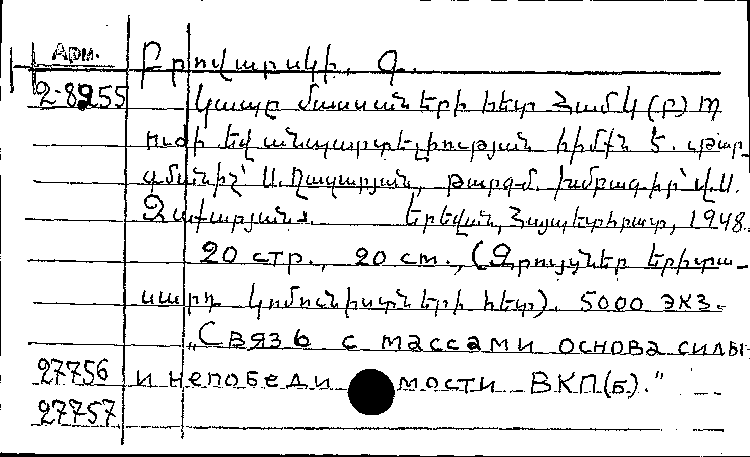 Арм. Բրովարսկի, Գ.
2-8255 Կապը մասսաների հետ ՀամԿ(բ)Պ
ուժի եվ անպարտելիության հիմքն է. թար-
գմանիչ՝ Ա. Ղազարյան, թարգմ. խմբագիր՝ Վ. Ա.
Զաքարյան. Երևան, Հայպետհրատ, 1948.
20 стр., 20 см., (Զրույցներ երիտա-
սարդ կոմունիստների հետ). 5000 экз.
„Связь с массами основа силы
27756 и непобедимости ВКП(б)."
27757